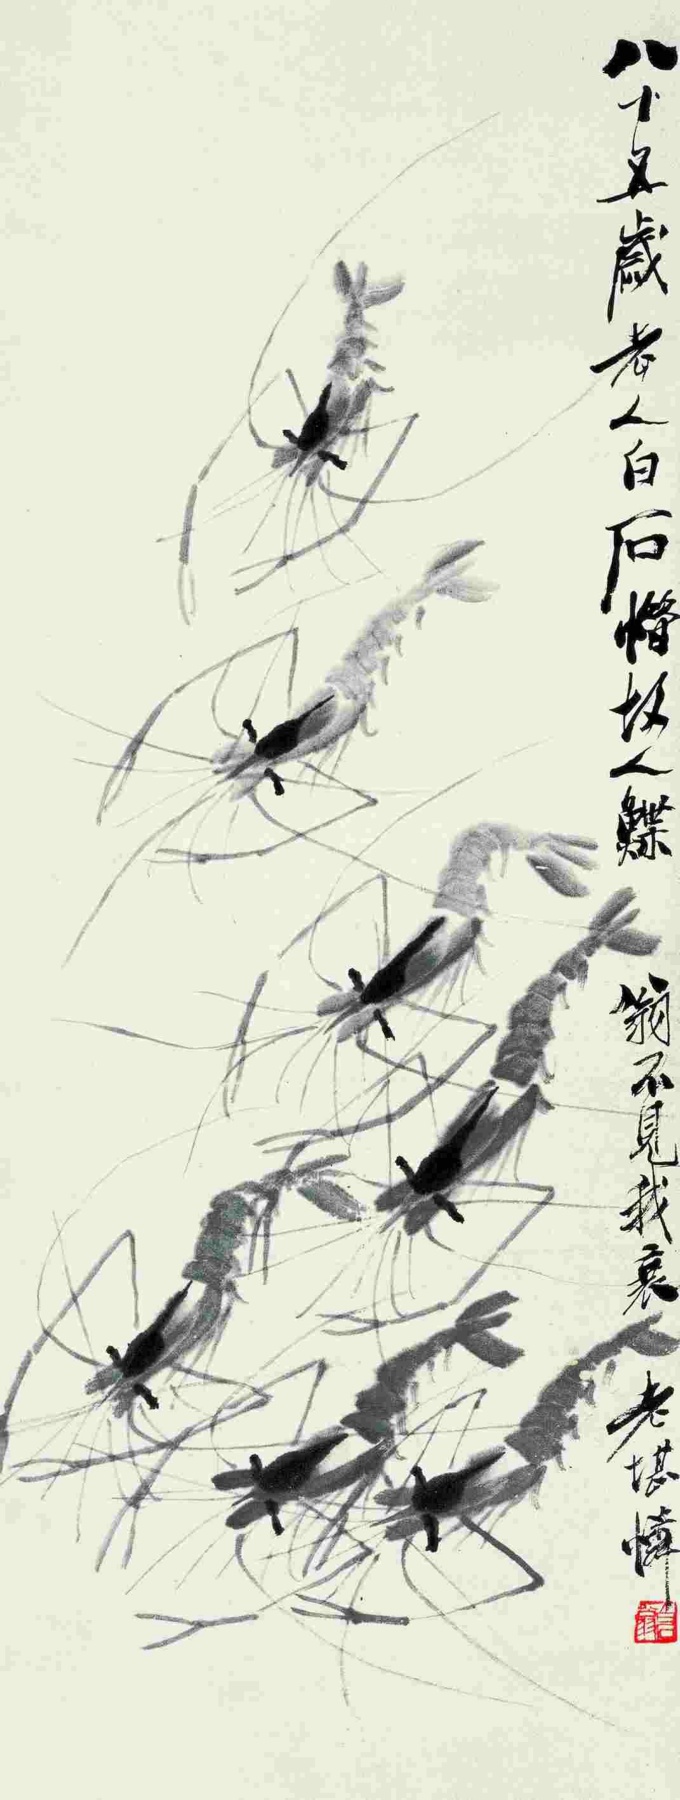 八十五歲老人白石憯故人鰈翁不見我衰老堪憐